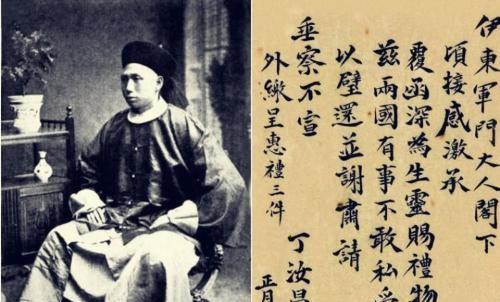 伊東軍門大人閣下
頃接感激承
覆函深為生靈賜禮物
茲兩國有事不敢私
以璧還並謝肅請
垂察不宣 丁汝昌
外繳呈惠禮三件 正月